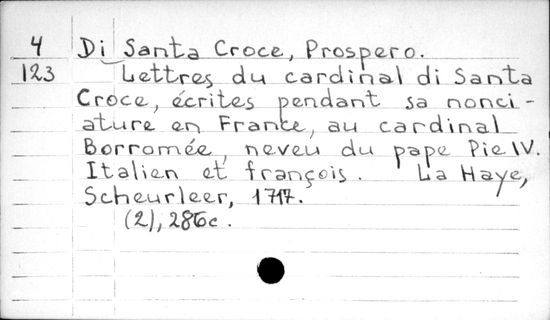 4 Di Santa Croce, Prospero.
123 Lettres du cardinal di Santa
Croce, écrites pendant sa nonci-
ature en France, au cardinal
Borromée, neveu du pape Pie IV.
Italien et françois. La Haye,
Scheurleer, 1717.
(2),